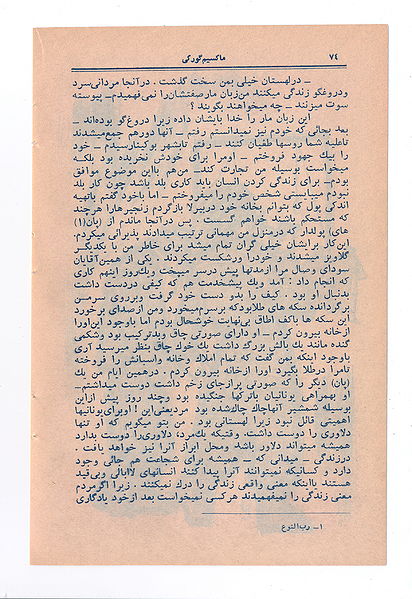 ۷٤
ماکسیم گورکی
ـ درلهستان خیلی بمن سخت گذشت . درآنجا مردانی سرد
ودروغگو زندگی میکنند من زبان مار صفتشان را نمی فهمیدم ـ پیوسته
سوت میزنند ـ چه میخواهند بگویند ؟
این زبان مار را خدا بایشان داده زیرا دروغ گو بوده اند ـ
بعد بجائی که خودم نیز نمیدانستم رفتم ـ آنها دورهم جمع میشدند
تاعلیه شما روسها طغیان کنند ـ رفتم تابشهر بوکینارسیدم ـ خود
را بیك جهود فروختم ـ اومرا برای خودش نخریده بود بلکه
میخواست بوسیله من تجارت کند ـ من هم بااین موضوع موافق
بودم ـ برای زندگی کردن انسان باید کاری بلد باشد چون کار بلد
نبودم میبایستی شخص خودم را میفروختم ـ اما باخود گفتم باتهیه
اندی پول که بتوانم بخانه خود در بیرلا بازگردم زنجیرهارا هرچند
که مستحکم باشند خواهم گسست . پس درآنجا ماندم از (پان(۱)
های) پولدار که درمنزل من مهمانی ترتیب میدادند پذیرائی میکردم.
این کار برایشان خیلی گران تمام میشد برای خاطر من با یکدیگر
گلاویز میشدند و خودرا ورشکست میکردند . یکی از همین آقایان
سودای وصال مرا ازمدتها پیش درسر میپخت ویك روز اینهم کاری
که انجام داد : آمد ویك پیشخدمت هم که کیفی دردست داشت
بدنبال او بود . کیف را بدو دست خود گرفت وبروی سرمن
برگرداند سکه های طلابود که برسرم میخورد ومن ازصدای برخورد
این سکه ها باکف اطاق بی نهایت خوشحال بودم اما باوجود این اورا
ازخانه بیرون کردم . او دارای صورتی چاق وبدترکیب بود وشکمی
گنده مانند یك بالش بزرگ داشت یك خوك چاق بنظر میرسید آری
باوجود اینکه بمن گفت که تمام املاك خانه واسبانش را فروخته
تامرا درطلا بگیرد اورا ازخانه بیرون کردم . درهمین ایام من یك
(پان) دیگر را که صورتی پرازجای زخم داشت دوست میداشتم ـ
او بهمراهی یونانیان باترکها جنگیده بود وچند روز پیش ازاین
بوسیله شمشیر آنهاچاك چاك شده بود مردیعنی این ! اوبرای یونانیها
اهمیتی قائل نبود زیرا لهستانی بود . من بتو میگویم که او تنها
دلاوری را دوست داشت. وقتیکه یك مرد، دلاوری را دوست بدارد
همیشه میتواند دلاور باشد ومحل ابراز آنرا نیز خواهد یافت .
درزندگی ـ میدانی که ـ همیشه برای شجاعت هم جائی وجود
دارد و کسانیکه نمیتوانند آنرا پیدا کنند انسانهای لاابالی وبی قید
هستند بااینکه معنی واقعی زندگی را درك نمیکنند . زیرا اگر مردم
معنی زندگی را میفهمیدند هر کسی نمیخواست بعد از خود یادگاری
۱ـ رب النوع